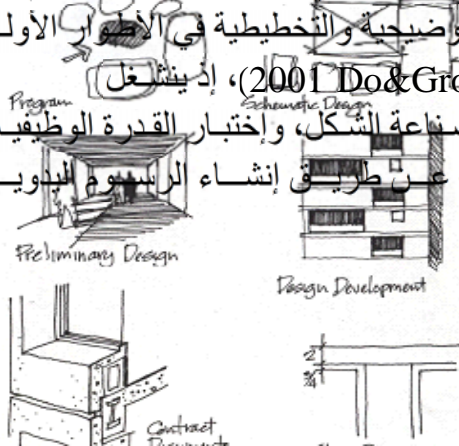 وضيحية والتخطيطية في الأطوار الأول
2001 Do&Gro)، إذ ينشغل
Program
Schematic Design
صناعة الشكل، وإختبار القدرة الوظيفيـ
عـن طريـق إنشـاء الرسـوم اليدويـ
Preliminary Design
Design Development
2
3/4
Contract
Documents